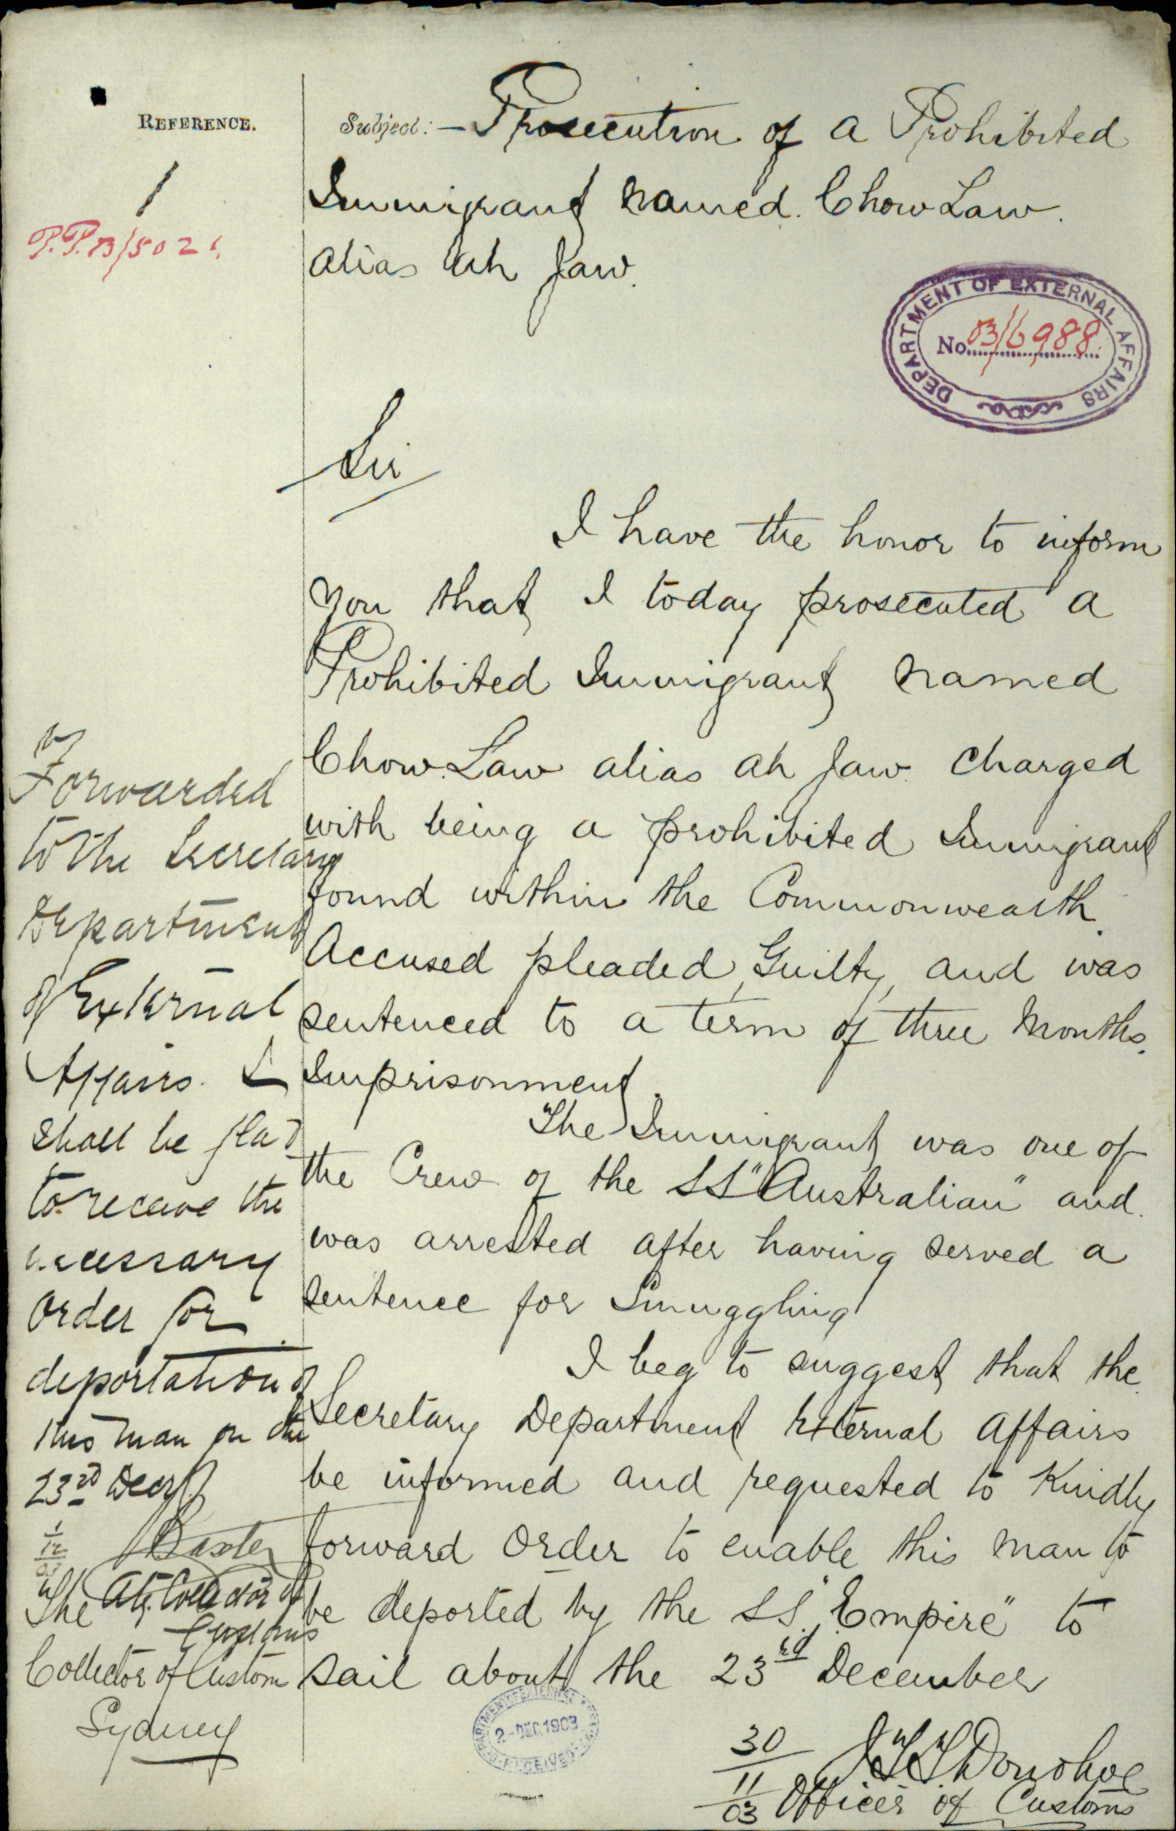 REFERENCE.
1
P.P.03/502
Subject:- Prosecution of a Prohibited
Immigrant named Chow Law
alias Ah Jaw.
DEPARTMENT OF EXTERNAL AFFAIRS
No 03/6988
Sir
I have the honor to inform
you that I today prosecuted a
Prohibited Immigrant named
Chow Law alias Ah Jaw charged
with being a prohibited Immigrant
found within the Commonwealth.
Accused pleaded Guilty, and was
sentenced to a term of three Months.
Imprisonment.
The Immigrant was one of
the Crew of the SS "Australian" and
was arrested after having served a
sentence for Smuggling
I beg to suggest that the
Secretary Department External Affairs
be informed and requested to Kindly
forward order to enable this man to
be deported by the SS "Empire" to
sail about the 23rd December
30
11
03
J T T Donohoe
Officer of Customs
Forwarded
to the Secretary
Department
of External
Affairs. I
shall be glad
to receive the
necessary
Order for
deportation of
this man on the
23rd Decr
1
12
03
Baxter
Actg Collector of
Customs
The
Collector of Customs
Sydney
2-DEC 1903
RECEIVED